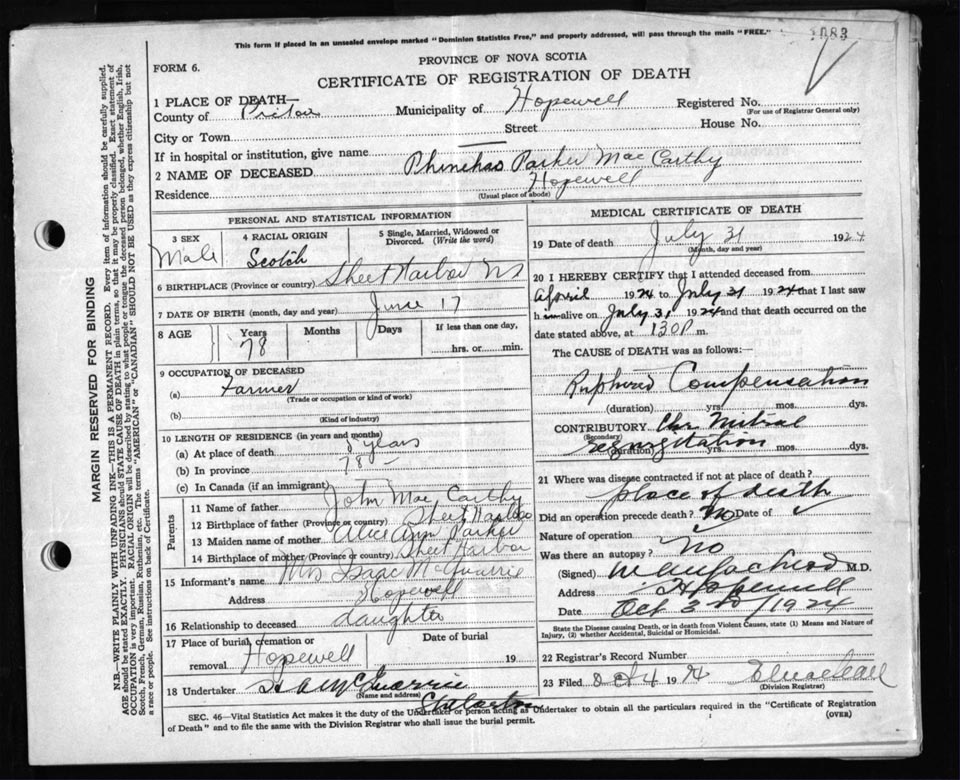 This form if placed in an unsealed envelope marked "Dominion Statistics Free," and properly addressed, will pass through the mails "FREE."
1083
FORM 6.
PROVINCE OF NOVA SCOTIA
CERTIFICATE OF REGISTRATION OF DEATH
1 PLACE OF DEATH—
County of Pictou Municipality of Hopewell Registered No.
(For use of Registrar General only)
City or Town Street House No.
If in hospital or institution, give name
2 NAME OF DECEASED Phinehas Parker MacCarthy
Residence Hopewell
(Usual place of abode)
PERSONAL AND STATISTICAL INFORMATION
3 SEX 4 RACIAL ORIGIN 5 Single, Married, Widowed or Divorced. (Write the word)
Male Scotch
6 BIRTHPLACE (Province or country) Sheet Harbor NS
7 DATE OF BIRTH (month, day and year) June 17
8 AGE Years Months Days If less than one day,
78 hrs. or min.
9 OCCUPATION OF DECEASED
(a) Farmer
(Trade or occupation or kind of work)
(b)
(Kind of industry)
10 LENGTH OF RESIDENCE (in years and months)
(a) At place of death years
(b) In province 78 –
(c) In Canada (if an immigrant)
Parents
11 Name of father John MacCarthy
12 Birthplace of father (Province or country) Sheet Harbor
13 Maiden name of mother Alice Ann Parker
14 Birthplace of mother (Province or country) Sheet Harbor
15 Informant's name Mrs Isaac McQuarrie
Address Hopewell
16 Relationship to deceased daughter
17 Place of burial, cremation or removal Hopewell Date of burial 19
18 Undertaker McQuarrie
(Name and address)
Stellarton
MEDICAL CERTIFICATE OF DEATH
19 Date of death July 31 1924
(Month, day and year)
20 I HEREBY CERTIFY that I attended deceased from
April 1924 to July 31 1924 that I last saw
him alive on July 31 1924 and that death occurred on the
date stated above, at 130 P m.
The CAUSE OF DEATH was as follows:
Compensation
(duration) yrs. mos. dys.
CONTRIBUTORY Chr Mitral
(Secondary)
regurgitation
(duration) yrs. mos. dys.
21 Where was disease contracted if not at place of death?
place of death
Did an operation precede death? No Date of
Nature of operation
Was there an autopsy? No
(Signed) M.D.
Address Hopewell
Date Oct 3rd /1924
State the Disease causing Death, or in death from Violent Causes, state (1) Means and Nature of Injury, (2) whether Accidental, Suicidal or Homicidal.
22 Registrar's Record Number
23 Filed Oct 4 1924
(Division Registrar)
SEC. 46—Vital Statistics Act makes it the duty of the Undertaker or person acting as Undertaker to obtain all the particulars required in the "Certificate of Registration
of Death" and to file the same with the Division Registrar who shall issue the burial permit.
(OVER)
MARGIN RESERVED FOR BINDING
N.B.—WRITE PLAINLY WITH UNFADING INK—THIS IS A PERMANENT RECORD. Every item of information should be carefully supplied.
AGE should be stated EXACTLY. PHYSICIANS should STATE CAUSE OF DEATH in plain terms, so that it may be properly classified. Exact statement of
OCCUPATION is very important. RACIAL ORIGIN will be described by stating to what people or tongue the deceased person belonged, whether English, Irish,
Scotch, French, German, Russian, Ruthenian, etc. The terms "AMERICAN" or "CANADIAN" SHOULD NOT BE USED as they express citizenship but not
a race or people. See instructions on back of Certificate.